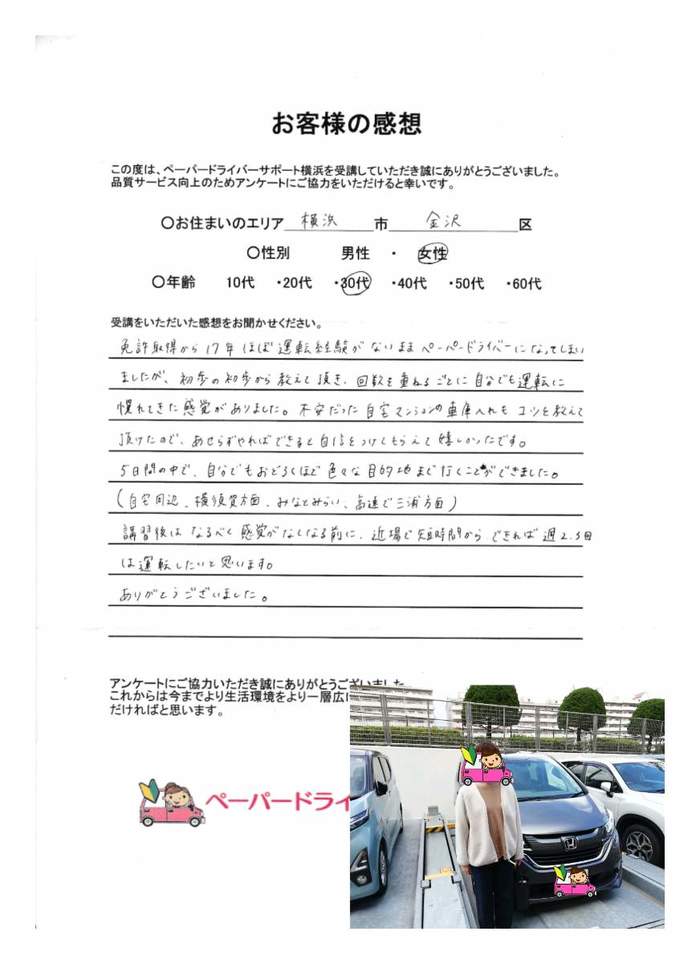 お客様の感想
この度は、ペーパードライバーサポート横浜を受講していただき誠にありがとうございました。
品質サービス向上のためアンケートにご協力をいただけると幸いです。
〇お住まいのエリア 横浜 市 金沢 区
〇性別 男性 ・ 女性
〇年齢 10代 ・20代 ・30代 ・40代 ・50代 ・60代
受講をいただいた感想をお聞かせください。
免許取得から17年ほぼ運転経験がないままペーパードライバーになってしまい
ましたが、初歩の初歩から教えて頂き、回数を重ねるごとに自分でも運転に
慣れてきた感覚がありました。不安だった自宅マンションの車庫入れもコツを教えて
頂けたので、あせらずやればできると自信をつけてもらえて嬉しかったです。
5日間の中で、自分でもおどろくほど色々な目的地まで行くことができました。
(自宅周辺、横須賀方面、みなとみらい、高速で三浦方面)
講習後はなるべく感覚がなくなる前に、近場で短時間からできれば週2.3回
は運転したいと思います。
ありがとうございました。
アンケートにご協力いただき誠にありがとうございました
これからは今までより生活環境をより一層広に
だければと思います。
ペーパードライ